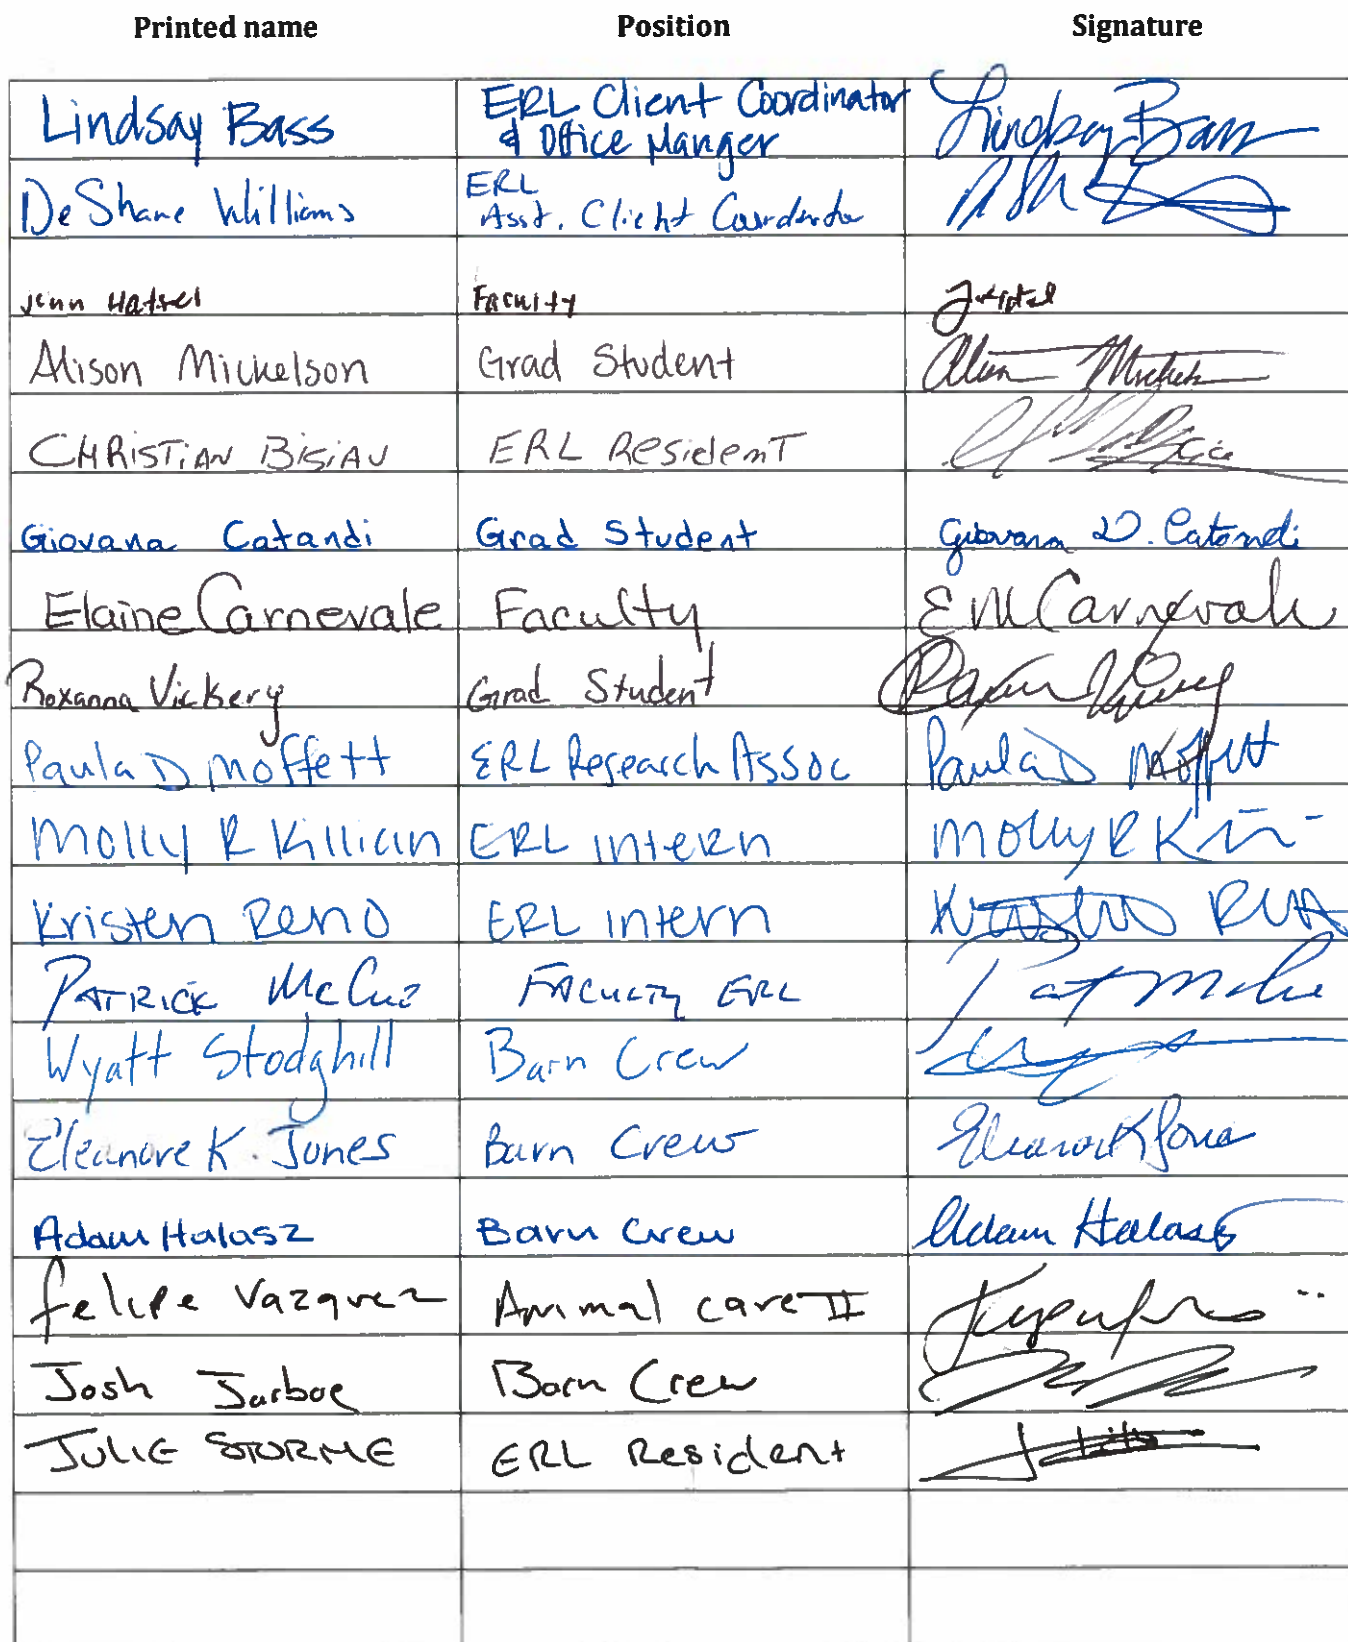 Printed name Position Signature
Lindsay Bass ERL Client Coordinator & Office Manger Lindsay Bass
DeShane Williams ERL Asst. Client Coordinator
Jenn Hatzel Faculty
Alison Mickelson Grad Student Alison Mickelson
CHRISTIAN BISIAU ERL Resident
Giovana Catandi Grad Student Giovana D. Catandi
Elaine Carnevale Faculty EM Carnevale
Roxanna Vickery Grad Student Roxanna Vickery
Paula D Moffett ERL Research Assoc Paula D Moffett
Molly R Killian ERL intern Molly R
Kristen Reno ERL intern Kristen Reno
PATRICK McCue FACULTY ERL Pat McCue
Wyatt Stodghill Barn Crew
Eleanore K. Jones Barn Crew Eleanore K Jones
Adam Halasz Barn Crew Adam Halasz
Felipe Vazquez Animal care II
Josh Jarboe Barn Crew
JULIE STORME ERL Resident